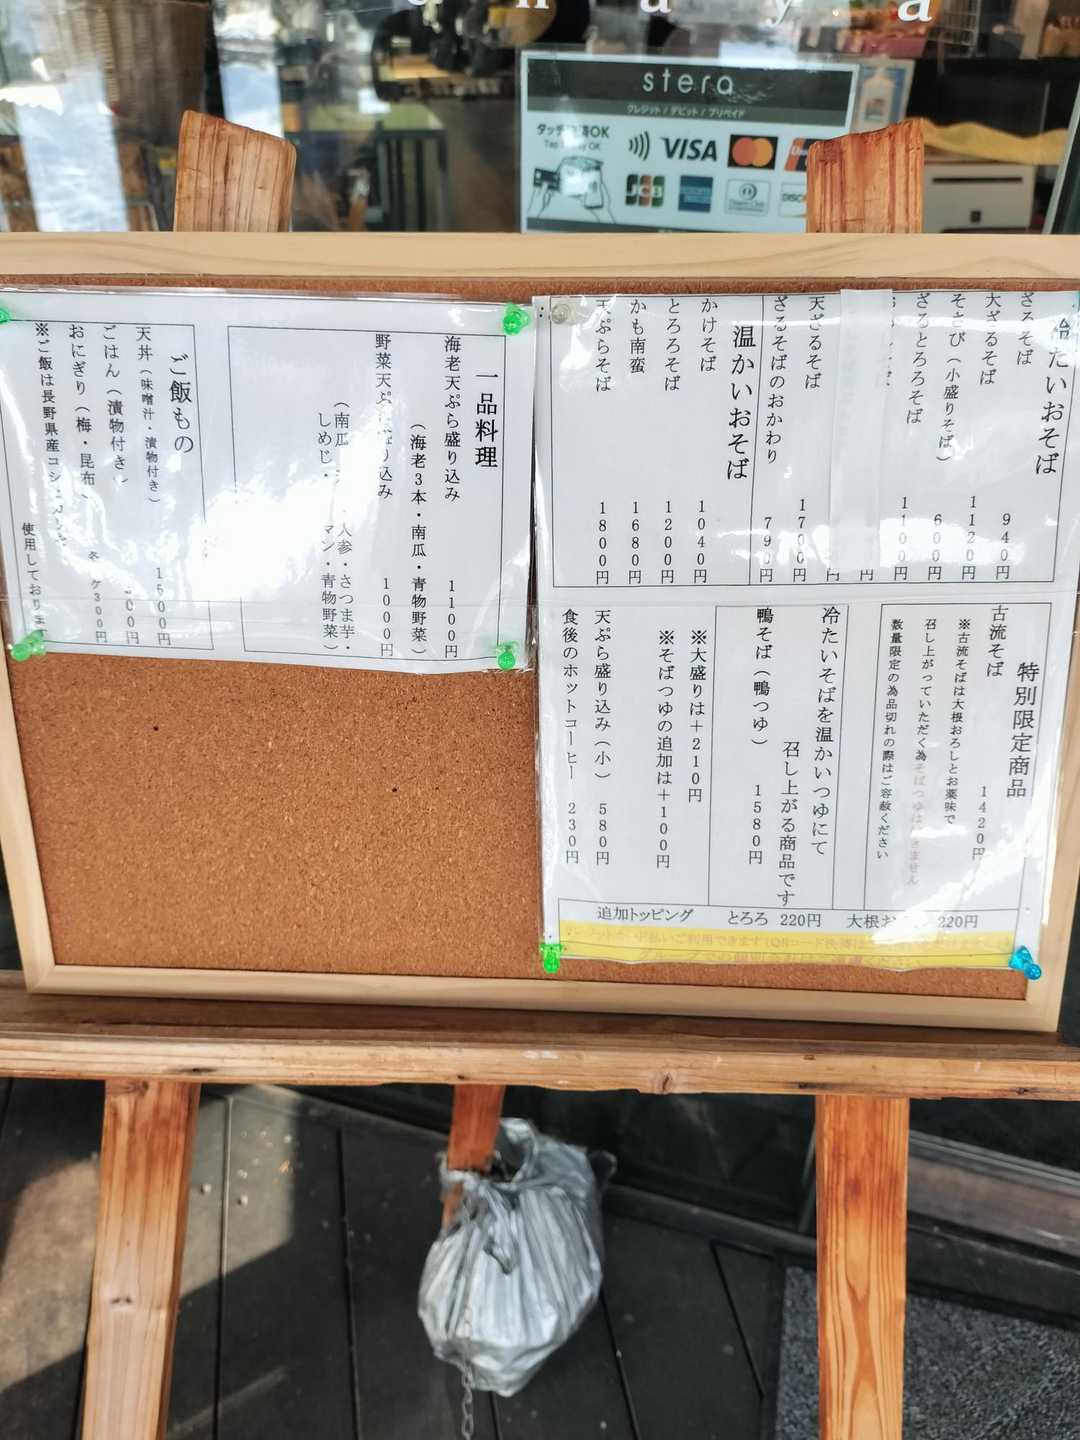 stera
クレジット / デビット / プリペイド
OK
VISA
JCB
冷たいおそば
ざるそば 940円
大ざるそば 1120円
そさび(小盛りそば) 600円
ざるとろろそば 1100円
天ざるそば 1700円
ざるそばのおかわり 790円
温かいおそば
かけそば 1040円
とろろそば 1200円
かも南蛮 1680円
天ぷらそば 1800円
特別限定商品
古流そば 1420円
※古流そばは大根おろしとお薬味で
召し上がっていただく為そばつゆは付きません
数量限定の為品切れの際はご容赦ください
冷たいそばを温かいつゆにて
召し上がる商品です
鴨そば(鴨つゆ) 1580円
※大盛りは+210円
※そばつゆの追加は+100円
天ぷら盛り込み(小) 580円
食後のホットコーヒー 230円
追加トッピング とろろ 220円 大根お 220円
一品料理
海老天ぷら盛り込み 1100円
(海老3本・南瓜・青物野菜)
野菜天ぷ り込み 1000円
(南瓜 人参・さつま芋・
しめじ・ マン・青物野菜)
ご飯もの
天丼(味噌汁・漬物付き) 1500円
ごはん(漬物付き) 00円
おにぎり(梅・昆布) 300円
※ご飯は長野県産コシ
使用しております